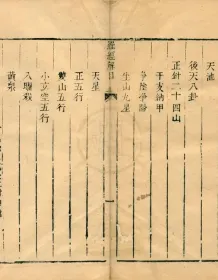 天池
後天八卦
正針二十四山
干支納甲
淨陰淨陽
生山九星
羅經解
天星
正五行
雙山五行
小玄空五行
八曜殺
黃泉